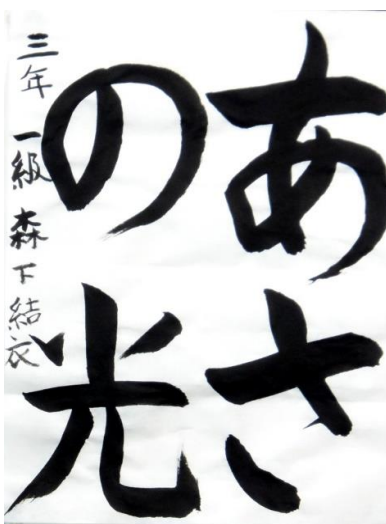 あさ
の光
三年 一級 森下結衣